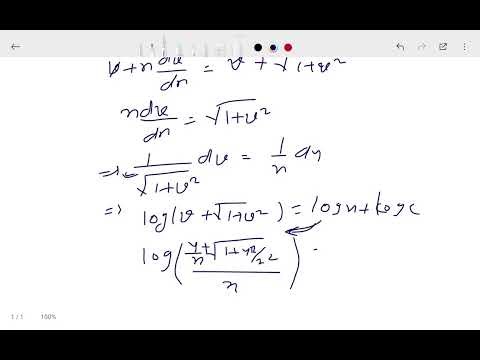 v + x dv/dx = v + √1+v²
x dv/dx = √1+v²
⇒ 1/√1+v² dv = 1/x dx
⇒ log(v + √1+v²) = log x + log c
log((y/x + √1+y²/x²)/x) =
1 / 1 160%